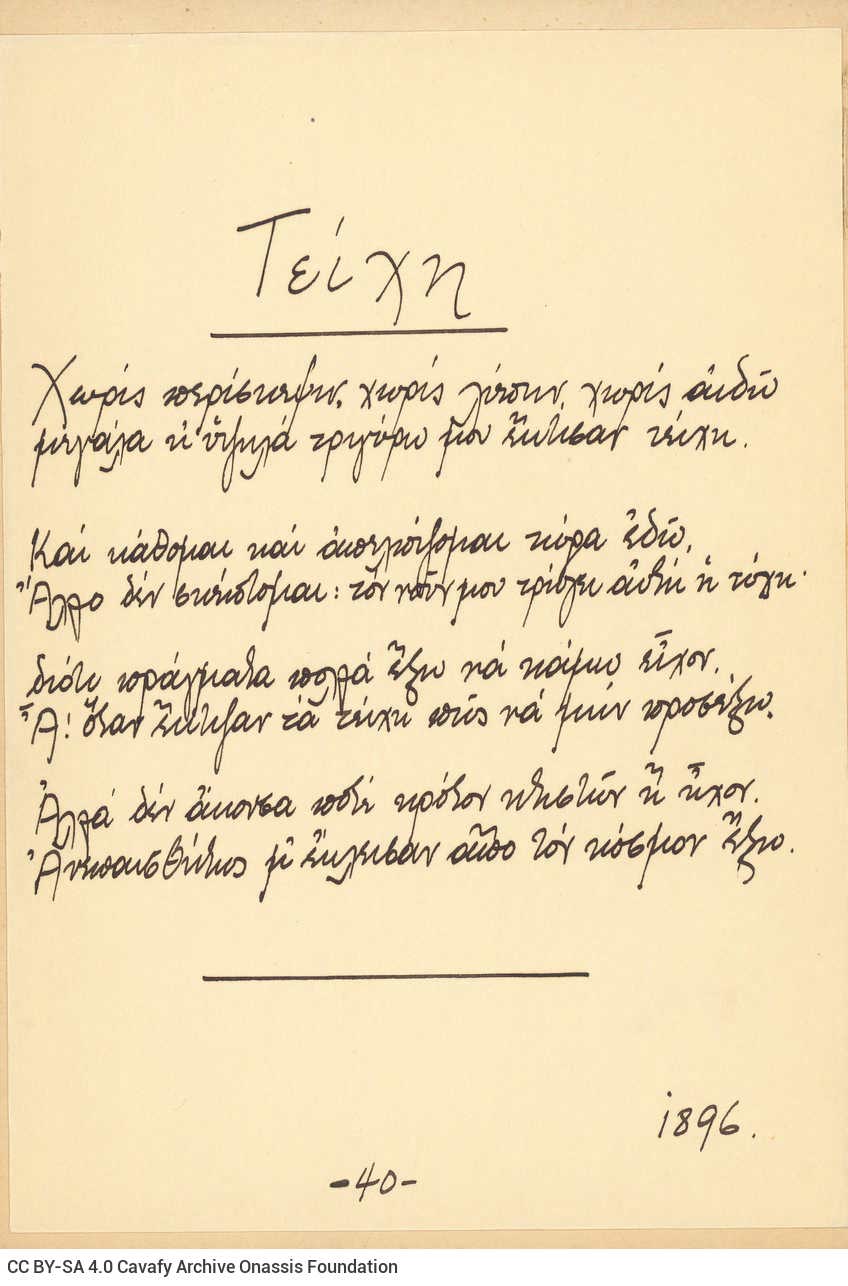 Τείχη
Χωρίς περίσκεψιν, χωρίς λύπην, χωρίς αἰδῶ
μεγάλα κ' ὑψηλά τριγύρω μου ἔκτισαν τείχη.
Καί κάθομαι καί ἀπελπίζομαι τώρα ἐδῶ.
Ἄλλο δέν σκέπτομαι: τόν νοῦν μου τρώγει αὐτή ἡ τύχη·
διότι πράγματα πολλά ἔξω νά κάμω εἶχον.
Ἆ! ὅταν ἔκτιζαν τά τείχη πῶς νά μήν προσέξω.
Ἀλλά δέν ἄκουσα ποτέ κρότον κτιστῶν ἤ ἦχον.
Ἀνεπαισθήτως μ' ἔκλεισαν ἀπό τόν κόσμον ἔξω.
1896.
-40-
CC BY-SA 4.0 Cavafy Archive Onassis Foundation